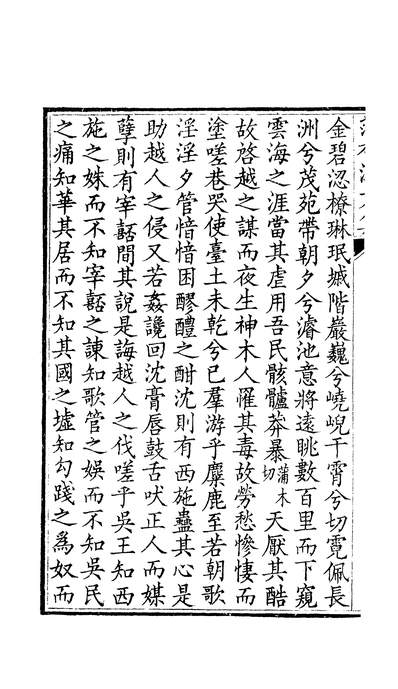 金碧涊橑琳珉墄階巖巍兮嶢峴干霄兮切霓佩長
洲兮茂苑帶朝夕兮濬池意將遠眺數百里而下窺
雲海之涯當其虐用吾民骸髗莽暴蒲木切天厭其酷
故啓越之謀而夜生神木人罹其毒故勞愁慘悽而
塗嗟巷哭使臺土未乾兮已羣游乎麋鹿至若朝歌
淫淫夕管愔愔困醪醴之酣沈則有西施蠱其心是
助越人之侵又若姦讒回沈膏唇鼓舌吠正人而媒
孽則有宰嚭間其說是誨越人之伐嗟乎吳王知西
施之姝而不知宰嚭之諫知歌管之娛而不知吳民
之痛知華其居而不知其國之墟知勾踐之為奴而